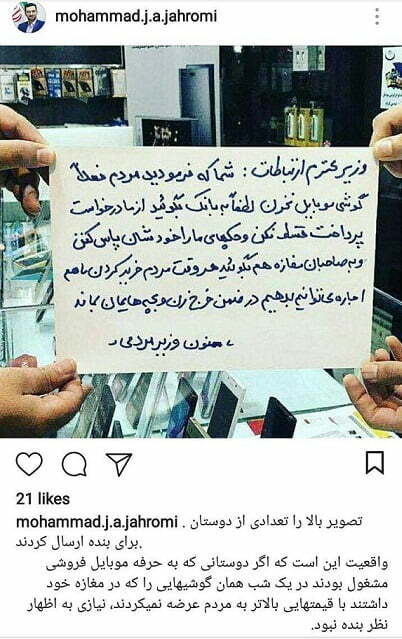 mohammad.j.a.jahromi
وزیر محترم ارتباطات: شما که فرمودید مردم فعلاً
گوشی موبایل نخرن لطفاً به بانک بگوئید از ما درخواست
پرداخت قسط نکن و چکهای ما را خودشان پاس کنن
و به صاحبان مغازه هم بگوئید هر وقت مردم خرید کردن ما هم
اجاره می‌توانیم بدهیم در ضمن خرج زن و بچه‌هایمان بماند
، ممنون وزیر مردمی ،
21 likes
mohammad.j.a.jahromi تصویر بالا را تعدادی از دوستان .
برای بنده ارسال کردند.
واقعیت این است که اگر دوستانی که به حرفه موبایل فروشی
مشغول بودند در یک شب همان گوشیهایی را که در مغازه خود
داشتند با قیمتهایی بالاتر به مردم عرضه نمیکردند، نیازی به اظهار
نظر بنده نبود.